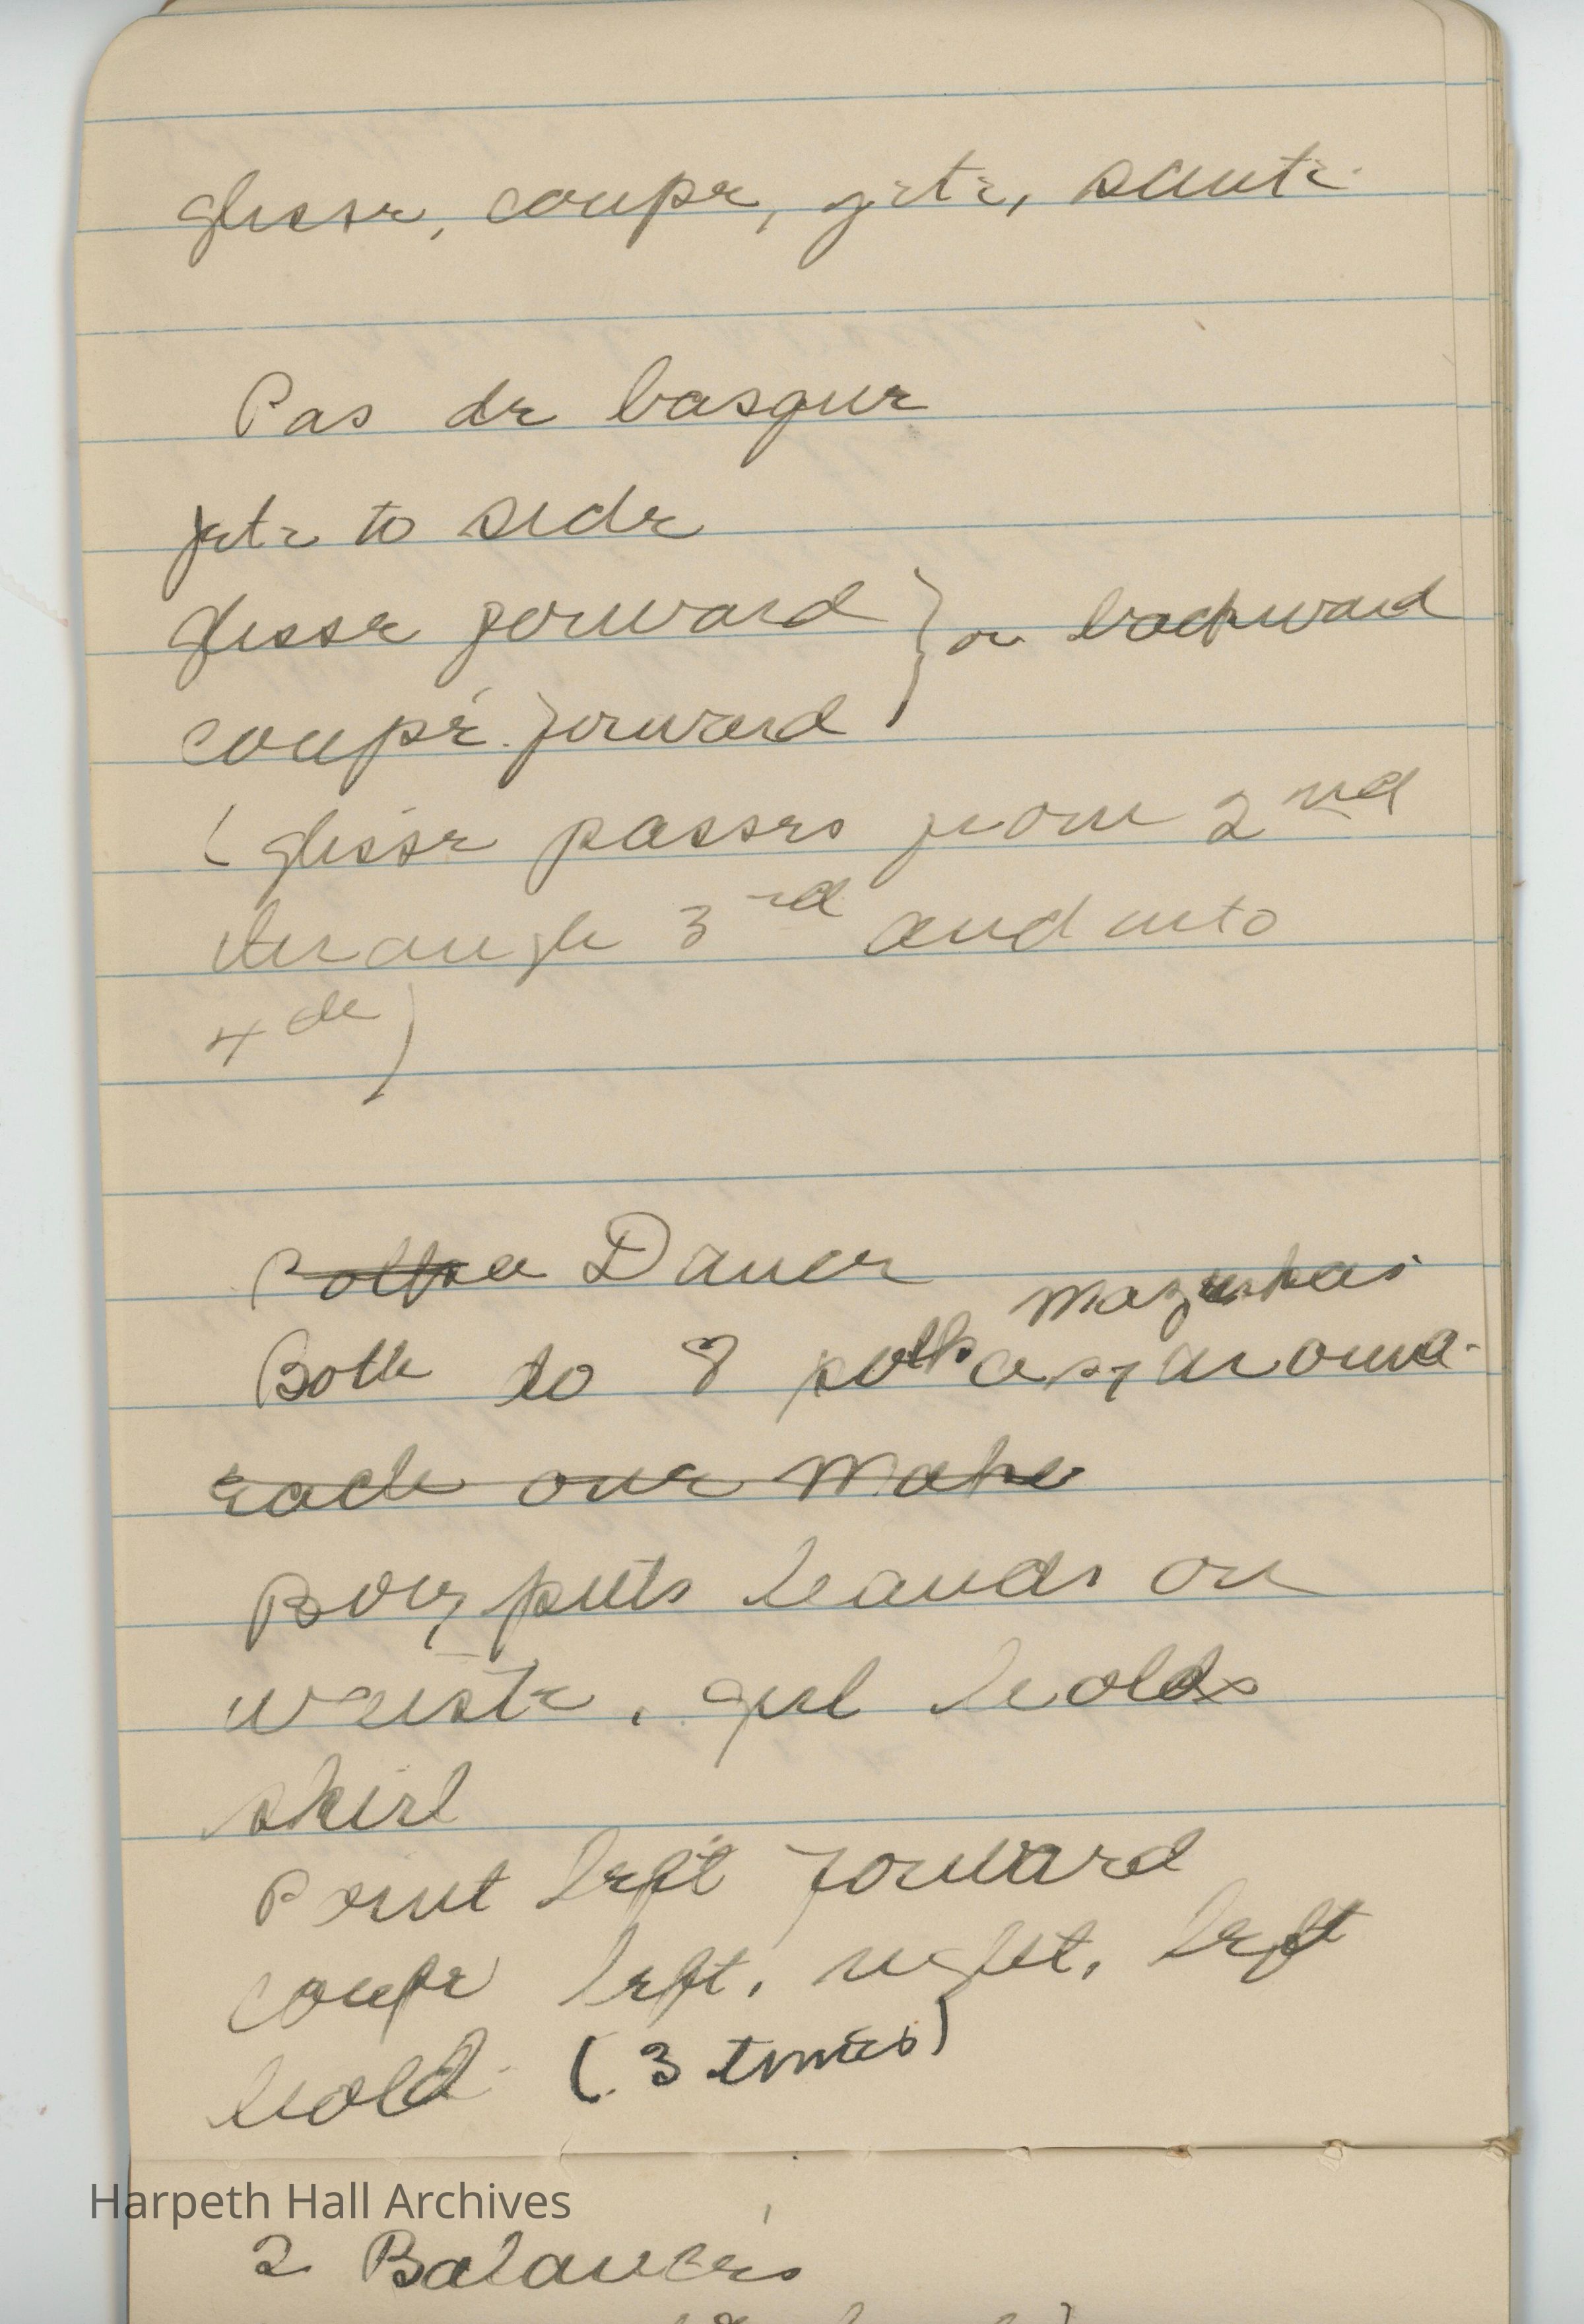 glisse, coupe, jete, saute
Pas de basque
jete to side
glisse forward } or backward
coupé forward
(glisse passes from 2nd
through 3rd and into
4th)
Polka Dance
mazurkas
Both do 8 polkas, around.
each one make
Boy puts hands on
waiste, girl holds
skirt
Point left forward
coupe left, right, left
hold (3 times)
Harpeth Hall Archives
2 Balances